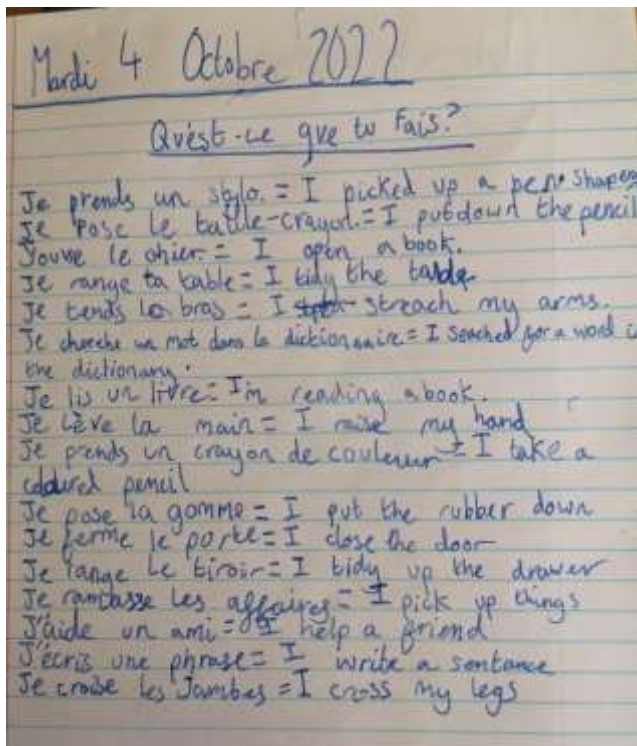 Mardi 4 Octobre 2022
Qu'est-ce que tu fais?
Je prends un stylo. = I picked up a pen. shapener
Je Pose le taille-crayon. = I put down the pencil
J'ouvre le ahier. = I open a book.
Je range ta table = I tidy the table
Je tends le bras = I streach my arms.
Je cherche un mot dans le dictionnaire. = I seached for a word in
the dictionary.
Je lis un livre = I'm reading a book.
Je Lève la main = I raise my hand
Je prends un crayon de couleur = I take a
coloured pencil
Je pose la gomme = I put the rubber down
Je ferme le porte = I close the door
Je range Le tiroir = I tidy up the drawer
Je ramasse Les affaires = I pick up things
J'aide un ami = I help a friend
J'écris une phrase = I write a sentance
Je croise les Jambes = I cross my legs